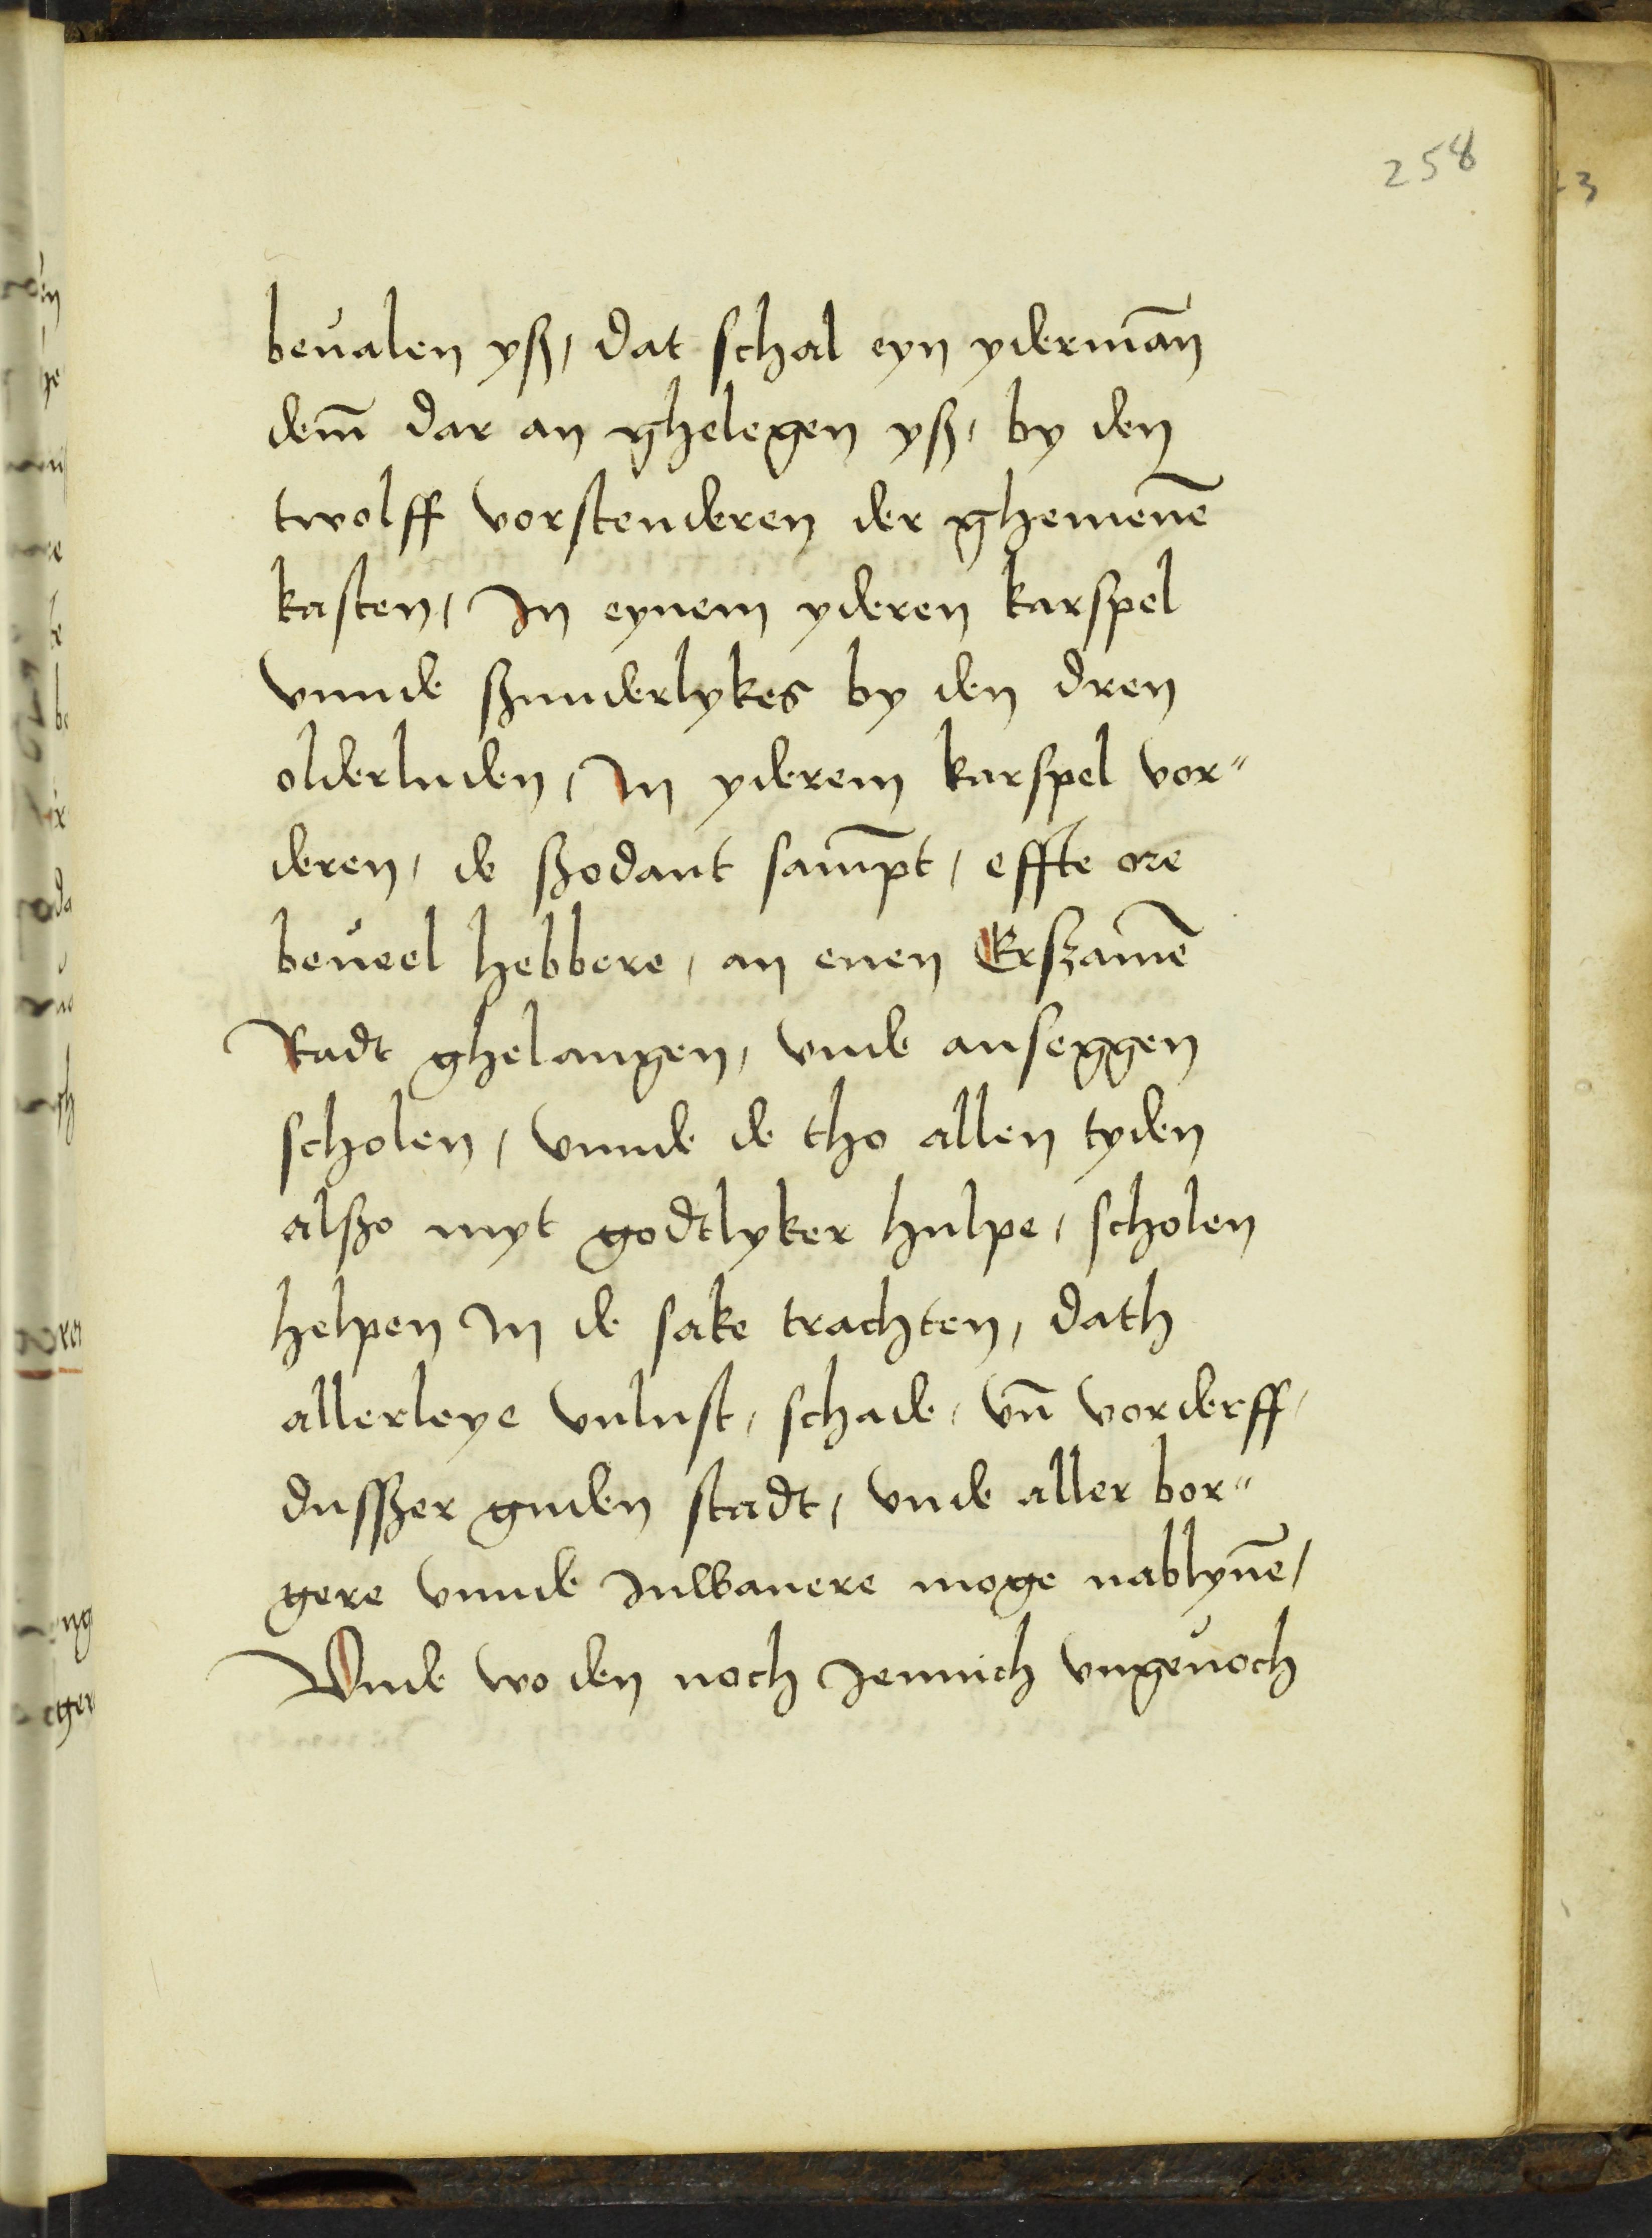 258
beualen yß, dat schal eyn yderman̄
dem̄ dar an ghelegen yß, by den
twolff vorstenderen der ghemenē
kasten, In eynem yderen karspel
vnnde ßunderlykes by den dren
olderluden, In yderem karspel vor"
deren, de ßodant sam̄pt, effte ore
beueel hebbere, an enen Erszamē
Radt ghelangen, vnde anseggen
scholen, vnnde de tho allen tyden
alßo myt godtlyker hulpe, scholen
helpen In de sake trachten, dath
allerleye vnlust, schade, vn̄ vorderff,
dusszer guden stadt, vnde aller bor"
gere vnnde Inwanere moge nablyuē,
Vnde wo den noch Jennich vngeuoch